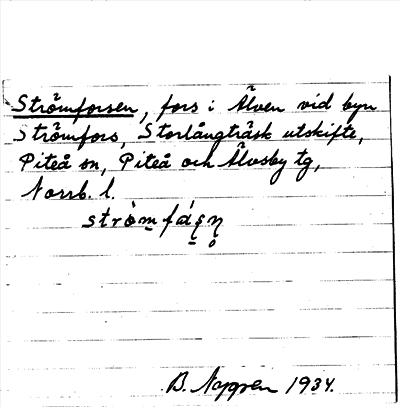 Strömforsen, fors i Älven vid byn
Strömfors, Storlångträsk utskifte,
Piteå sn, Piteå och Älvsby tg,
Norrb. l.
strò̀m̠fáʂ̠n̥
B. Nygren 1934.